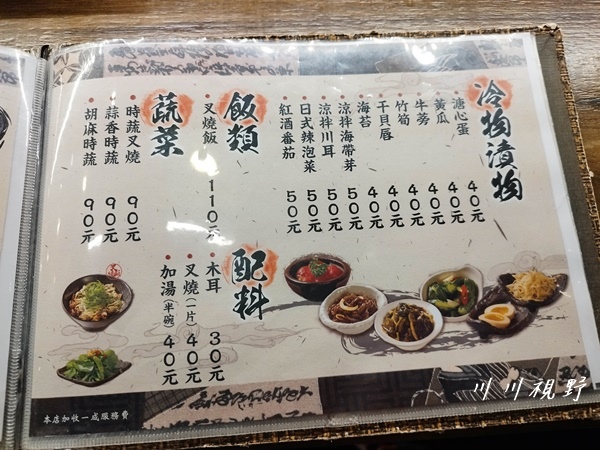 冷物漬物
溏心蛋 40元
黃瓜 40元
牛蒡 40元
竹筍 40元
干貝唇 40元
海苔 40元
涼拌海帶芽 50元
涼拌川耳 50元
日式辣泡菜 50元
紅酒番茄 50元
飯類
叉燒飯 110元
蔬菜
時蔬叉燒 90元
蒜香時蔬 90元
胡麻時蔬 90元
配料
木耳 30元
叉燒(一片) 40元
加湯(半碗) 40元
本店加收一成服務費
川川視野